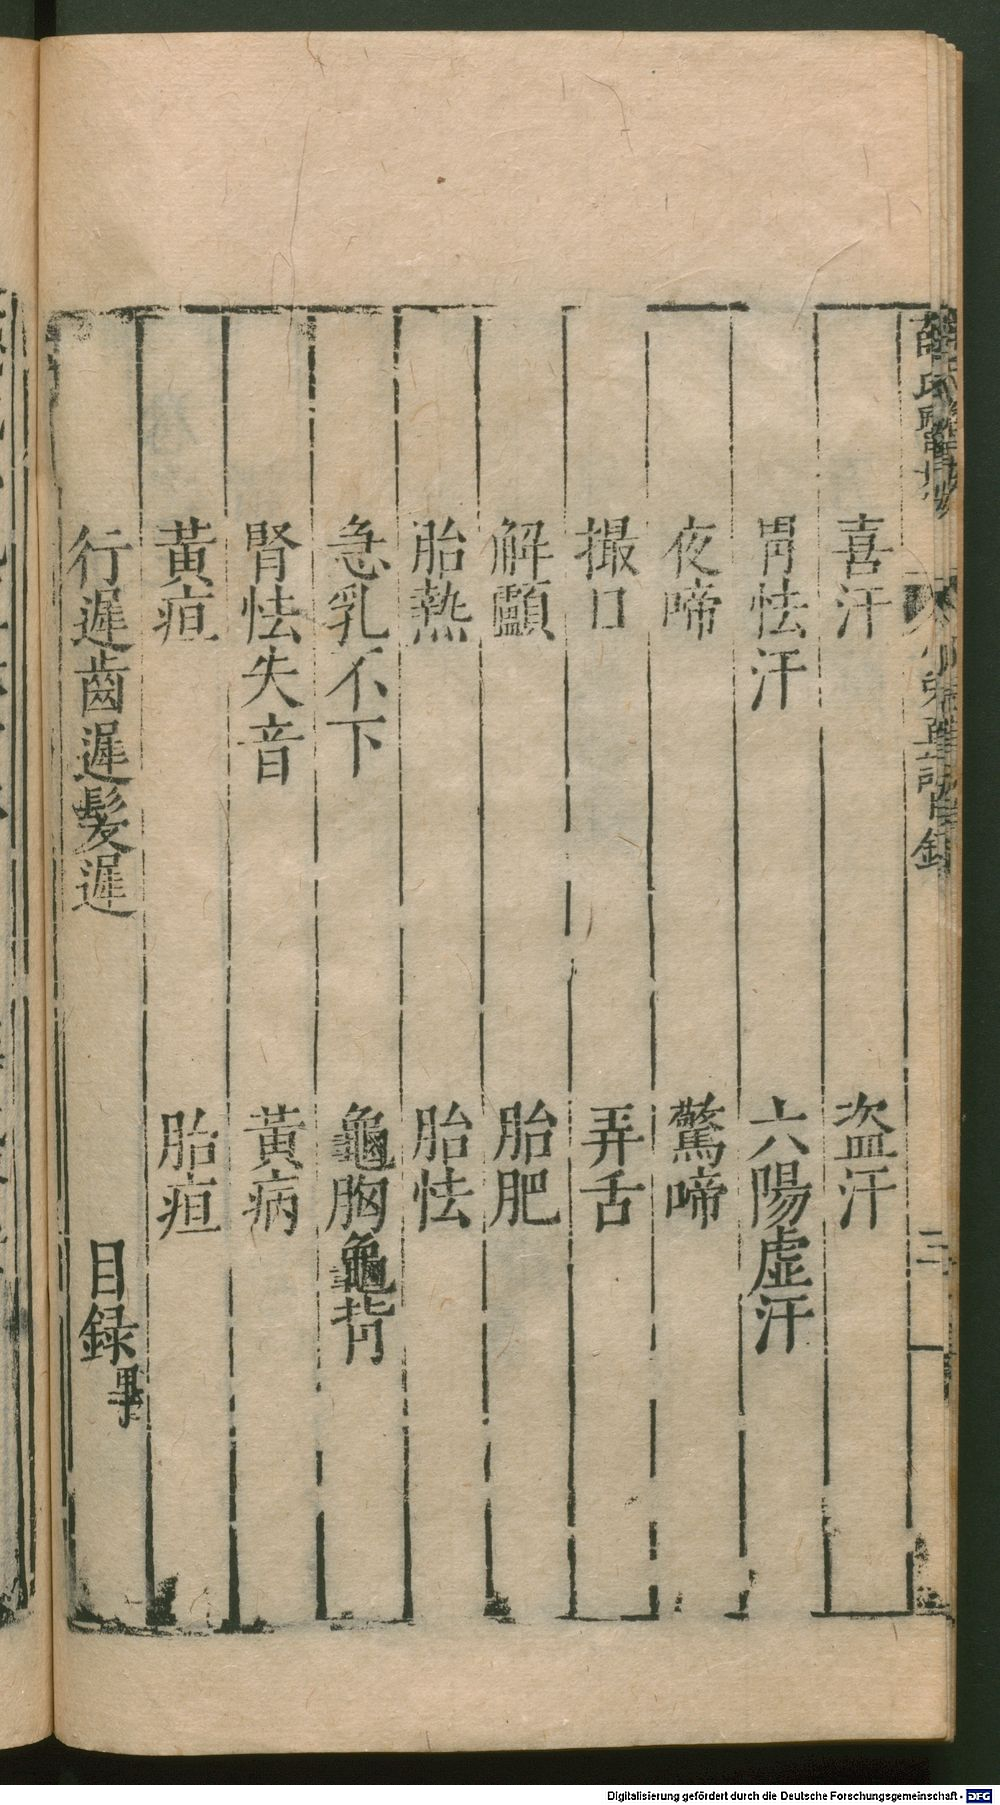 喜汗 盜汗
胃怯汗 六陽虛汗
夜啼 驚啼
撮口 弄舌
解顱 胎肥
胎熱 胎怯
急乳不下 龜胸龜背
腎怯失音 黃病
黃疸 胎疸
行遲齒遲髮遲 目錄畢
三
Digitalisierung gefördert durch die Deutsche Forschungsgemeinschaft - DFG